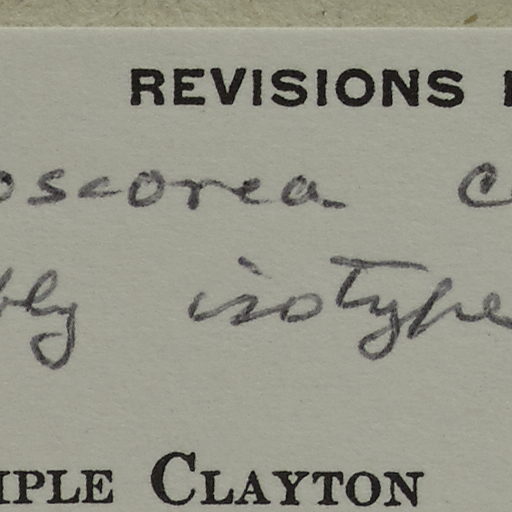 REVISIONS
oscorea c
bly isotype
IPLE CLAYTON